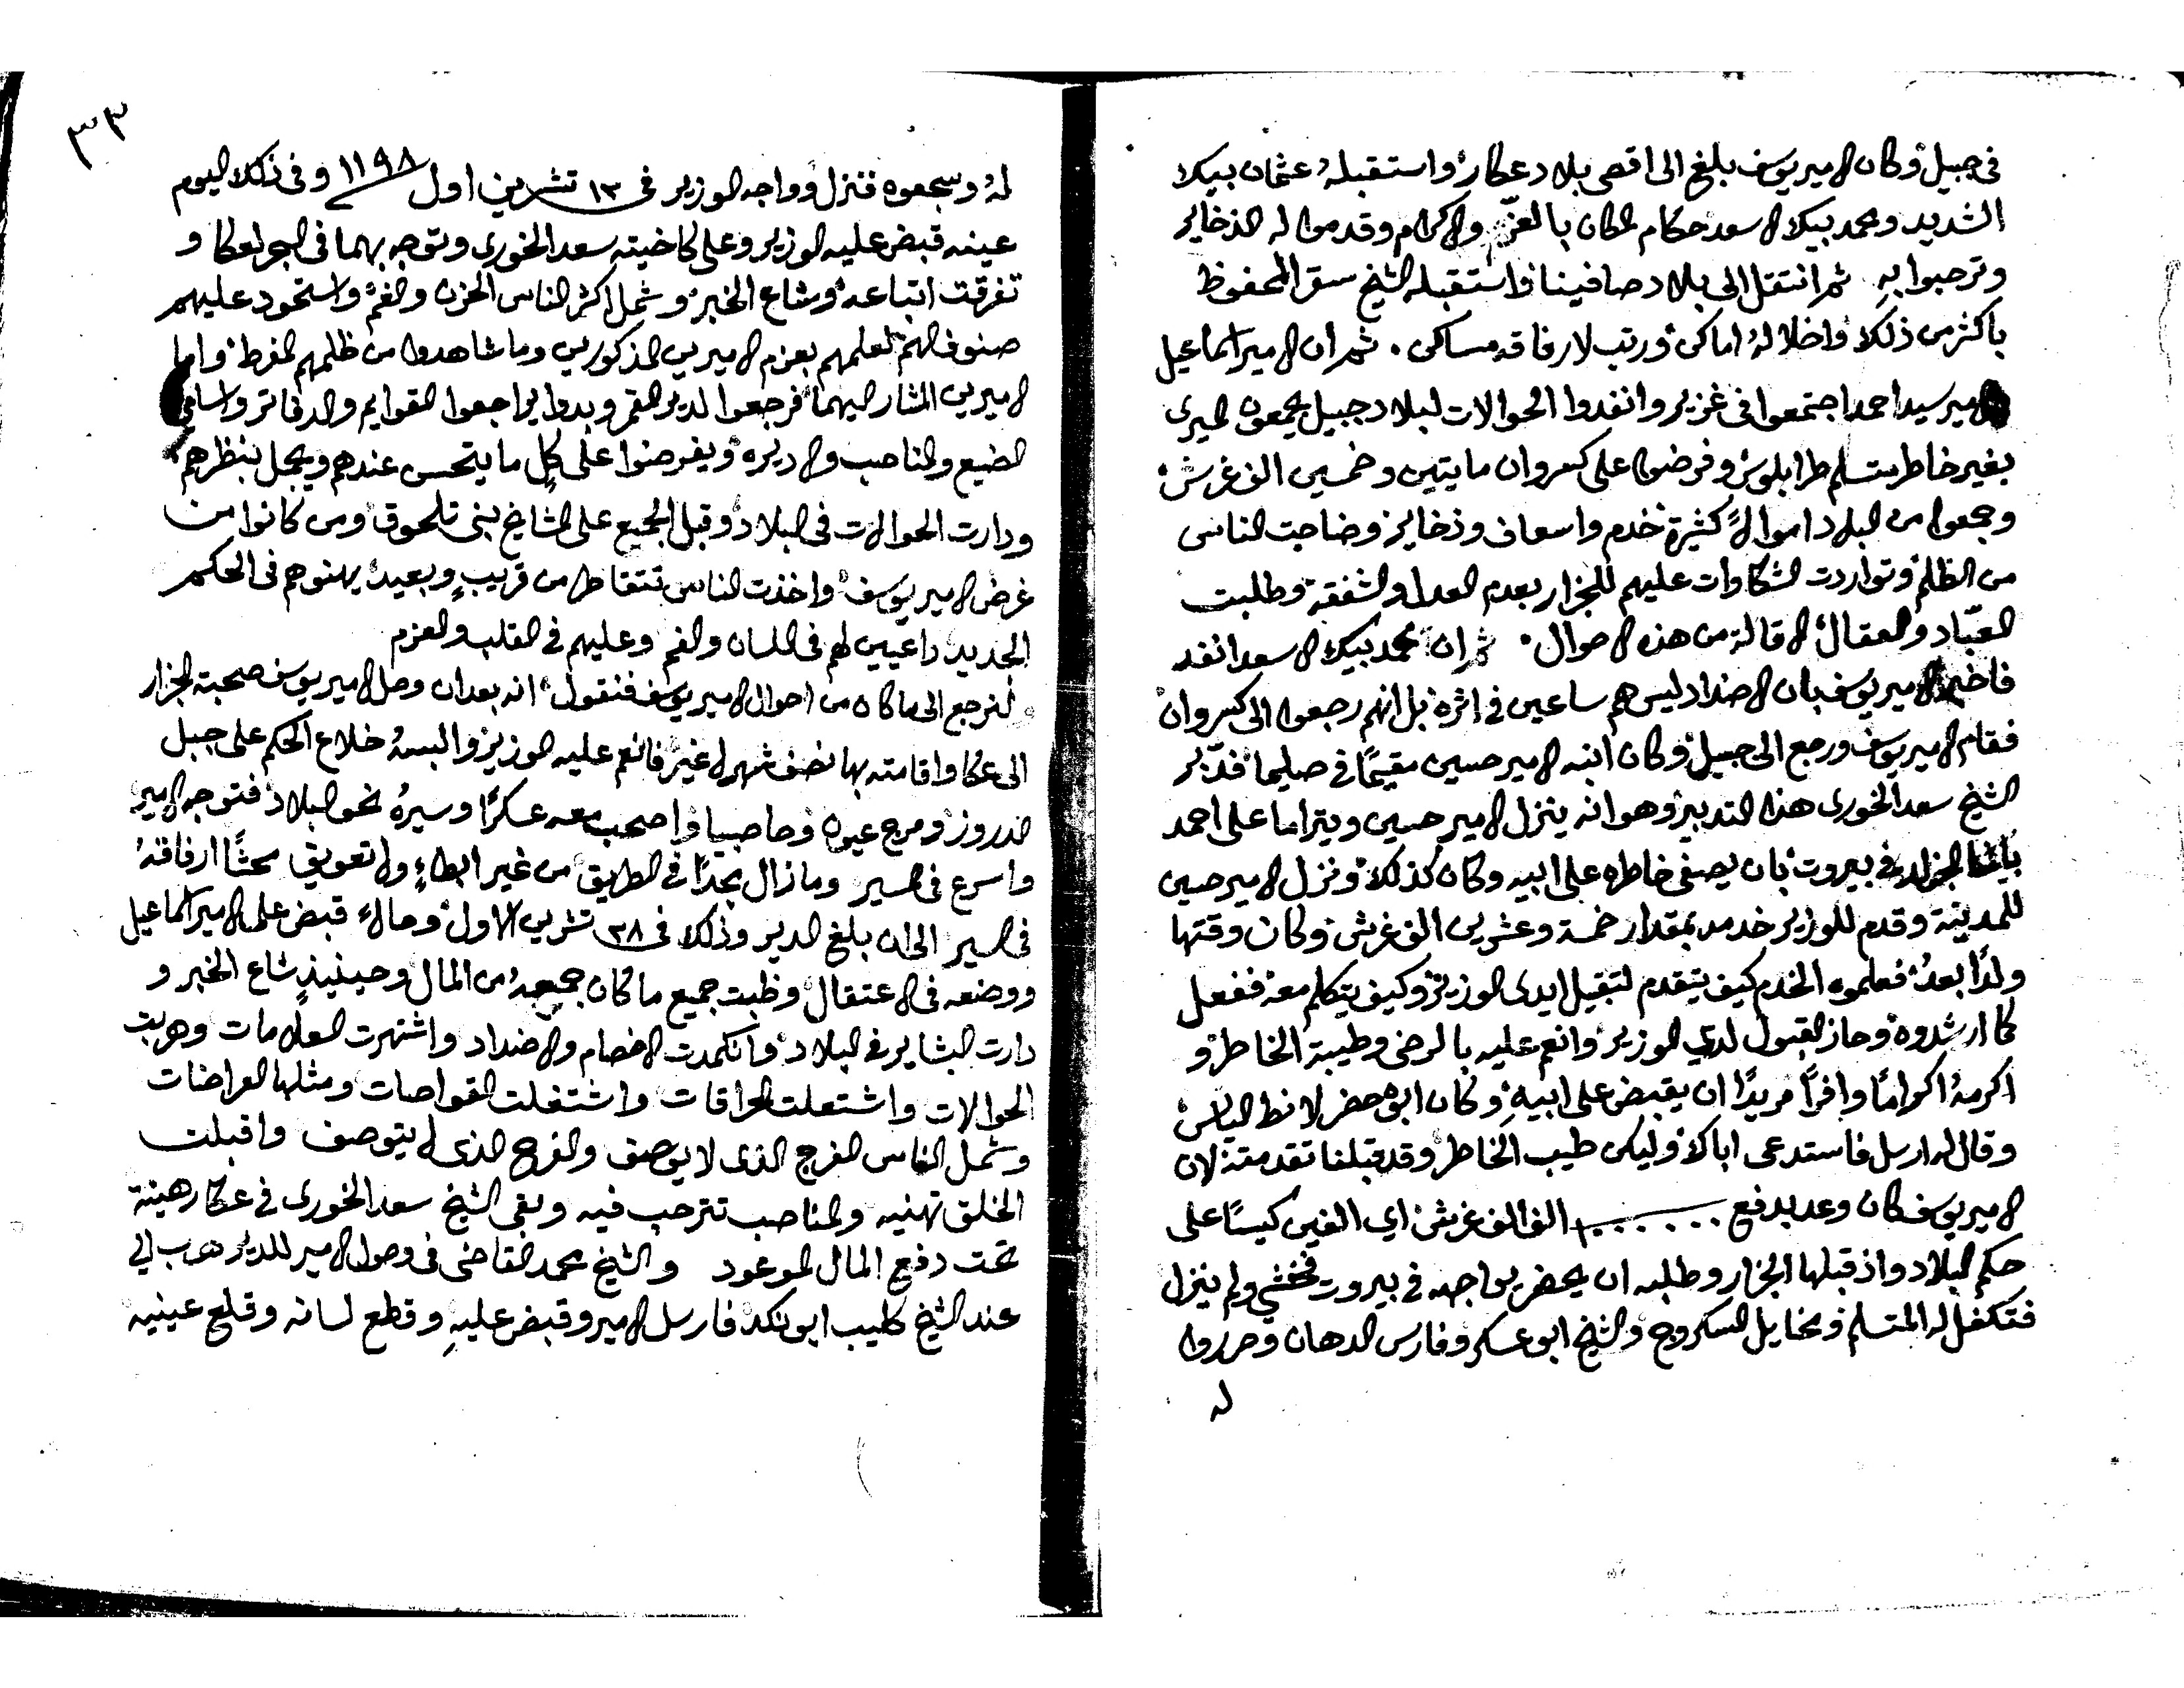 في جبيل وكان الامير يوسف بلغ الى اقصى بلاد عكار واستقبله عثمان بيك
الشديد ومحمد بيك الاسعد حكام المكان بالعز والاكرام وقدموا له الذخاير
وترحبوا به ثم انتقل الى بلاد صافيتا واستقبله الشيخ سقر المحفوظ
باكثر من ذلك واخلا له اماكن ورتب لارفاقه مساكن . ثم ان الامير اسماعيل
والامير سيد احمد اجتمعوا في غزير وانفدوا الحوالات لبلاد جبيل يجمعون الميري
بغير خاطر متسلم طرابلوس وفرضوا على كسروان مايتين وخمسين الف غرش
وجمعوا من البلاد اموالاً كثيرة خدم واسعاف وذخاير وضاجت الناس
من الظلم وتواردت الشكاوات عليهم للجزار بعدم العدل والشفقة وطلبت
العبّاد والعقال الاقالة من هذه الاحوال ثم ان محمد بيك الاسعد انفد
فاخبر الامير يوسف بان الاضداد ليس هم ساعين في اثره بل انهم رجعوا الى كسروان
فقام الامير يوسف ورجع الى جبيل وكان ابنه الامير حسين مقيماً في صليما فدبّر
الشيخ سعد الخوري هذا التدبير وهو انه ينزل الامير حسين ويتراما على احمد
باشا الجزار في بيروت بان يصفي خاطره على ابيه وكان كذلك ونزل الامير حسين
للمدينة وقدم للوزير خدمه بمقدار خمسة وعشرين الف غرش وكان وقتها
ولداً بعدُ فعلموه الخدم كيف يتقدم لتقبيل ايدي الوزير وكيف يتكلم معه ففعل
كما ارشدوه وحاز القبول لدي الوزير وانعم عليه بالرضى وطيبة الخاطر و
اكرمه اكراماً وافراً مريداً ان يقبض على ابيهِ وكان ابوه حضر لانط الياس
وقال له ارسل فاستدعى اباك وليكن طيب الخاطر وقد قبلنا تقدمته لان
الامير يوسف كان وعد بدفع ١٠٠٠٠٠٠ الف الف غرش اي الفين كيساً على
حكم البلاد واذ قبلها الجزار وطلبه ان يحضر يواجهه في بيروت فخشي ولم ينزل
فتكفل له المتسلم ومخايل السكروج والشيخ ابو عسكر وفارس الدهان وحرروا
له
٣٣
له وسجعوه فنزل وواجه الوزير في ١٣ تشرين اول ١١٩٨ وفي ذلك اليوم
عينه قبض عليه الوزير وعلى كاخيته سعد الخوري وتوجه بهما في البحر لعكا و
تفرقت اتباعه وشاع الخبر وشمل اكثر الناس الحزن والغم واستحود عليهم
صنوف الهم لعلمهم بعزم الاميرين المذكورين وما شاهدوا من ظلمهم المفرط واما
الاميرين المشار اليهما فرجعوا لدير القمر وبدوا يراجعوا القوايم والدفاتر واسامي
الضيع والمناصب والاديره ويفرضوا على كلِ ما يتحسن عندهم ويجل بنظرهم
ودارت الحوالات في البلاد وقبل الجميع على المشايخ بني تلحوق ومن كانوا من
غرض الامير يوسف واخذت الناس تتقاطر من قريبٍ وبعيد يهنوهم في الحكم
الجديد داعيين لهم في اللسان والفم وعليهم في القلب والعزم
لنرجع الى ما كان من احوال الامير يوسف فنقول انه بعد ان وصل الامير يوسف صحبة الجزار
الى عكا واقامته بها نصف شهر لا غير فانعم عليه الوزير والبسه خلاع الحكم على جبل
الدروز ومرج عيون وحاصبيا واصحب معه عسكراً وسيره نحو البلاد فتوجه الامير
واسرع في المسير وما زال مجداً في الطريق من غير ابطاءٍ ولا تعويق محثاً ارفاقه
في المسير الى ان بلغ الدير وذلك في ٢٨ تشرين الاول وحالاً قبض على الامير اسماعيل
ووضعه في الاعتقال وظبت جميع ما كان جمعه من المال وحينيذٍ شاع الخبر و
دارت البشاير في البلاد وانكمدت الاخصام والاضداد واشتهرت العلامات وهربت
الحوالات واشتعلت الحراقات واشتغلت القواصات ومثلها العراضات
وشمل الناس الفرج الذي لا يوصف والفرح الذي لا يتوصف واقبلت
الخلق تهنيه والمناصب تترحب فيه وبقي الشيخ سعد الخوري في عكا رهينة
تحت دفع المال الموعود والشيخ محمد القاضي في وصول الامير للدير هرب الي
عند الشيخ كليب ابو نكد فارسل الامير وقبض عليهِ وقطع لسانه وقلع عينيه